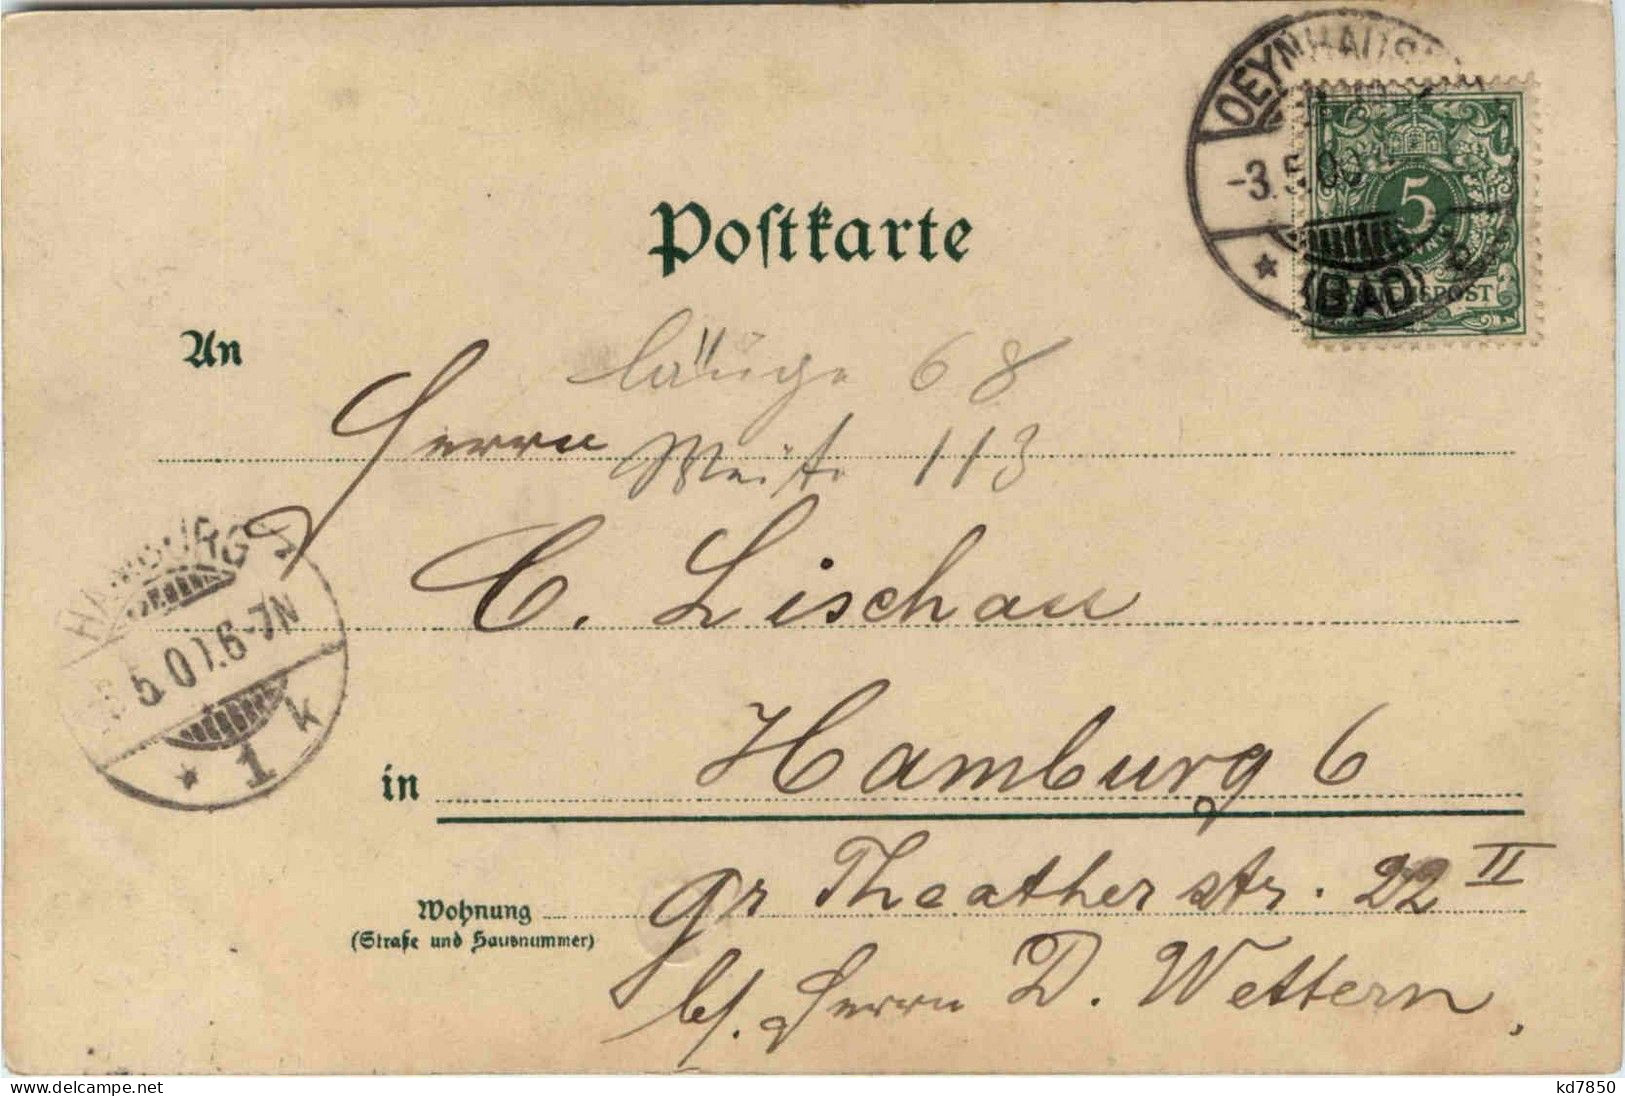 OEYNHAUS
-3.5.00
(BAD)
5
REICHSPOST
Postkarte
An
Länge 68
Herrn
Weite 113
HAMBURG
5.0 0.6-7N
* 1 k
C. Lischau
in Hamburg 6
Wohnung
(Straße und Hausnummer)
gr Theather str. 22 II
b/. Herrn D. Wettern,
www.delcampe.net
kd7850